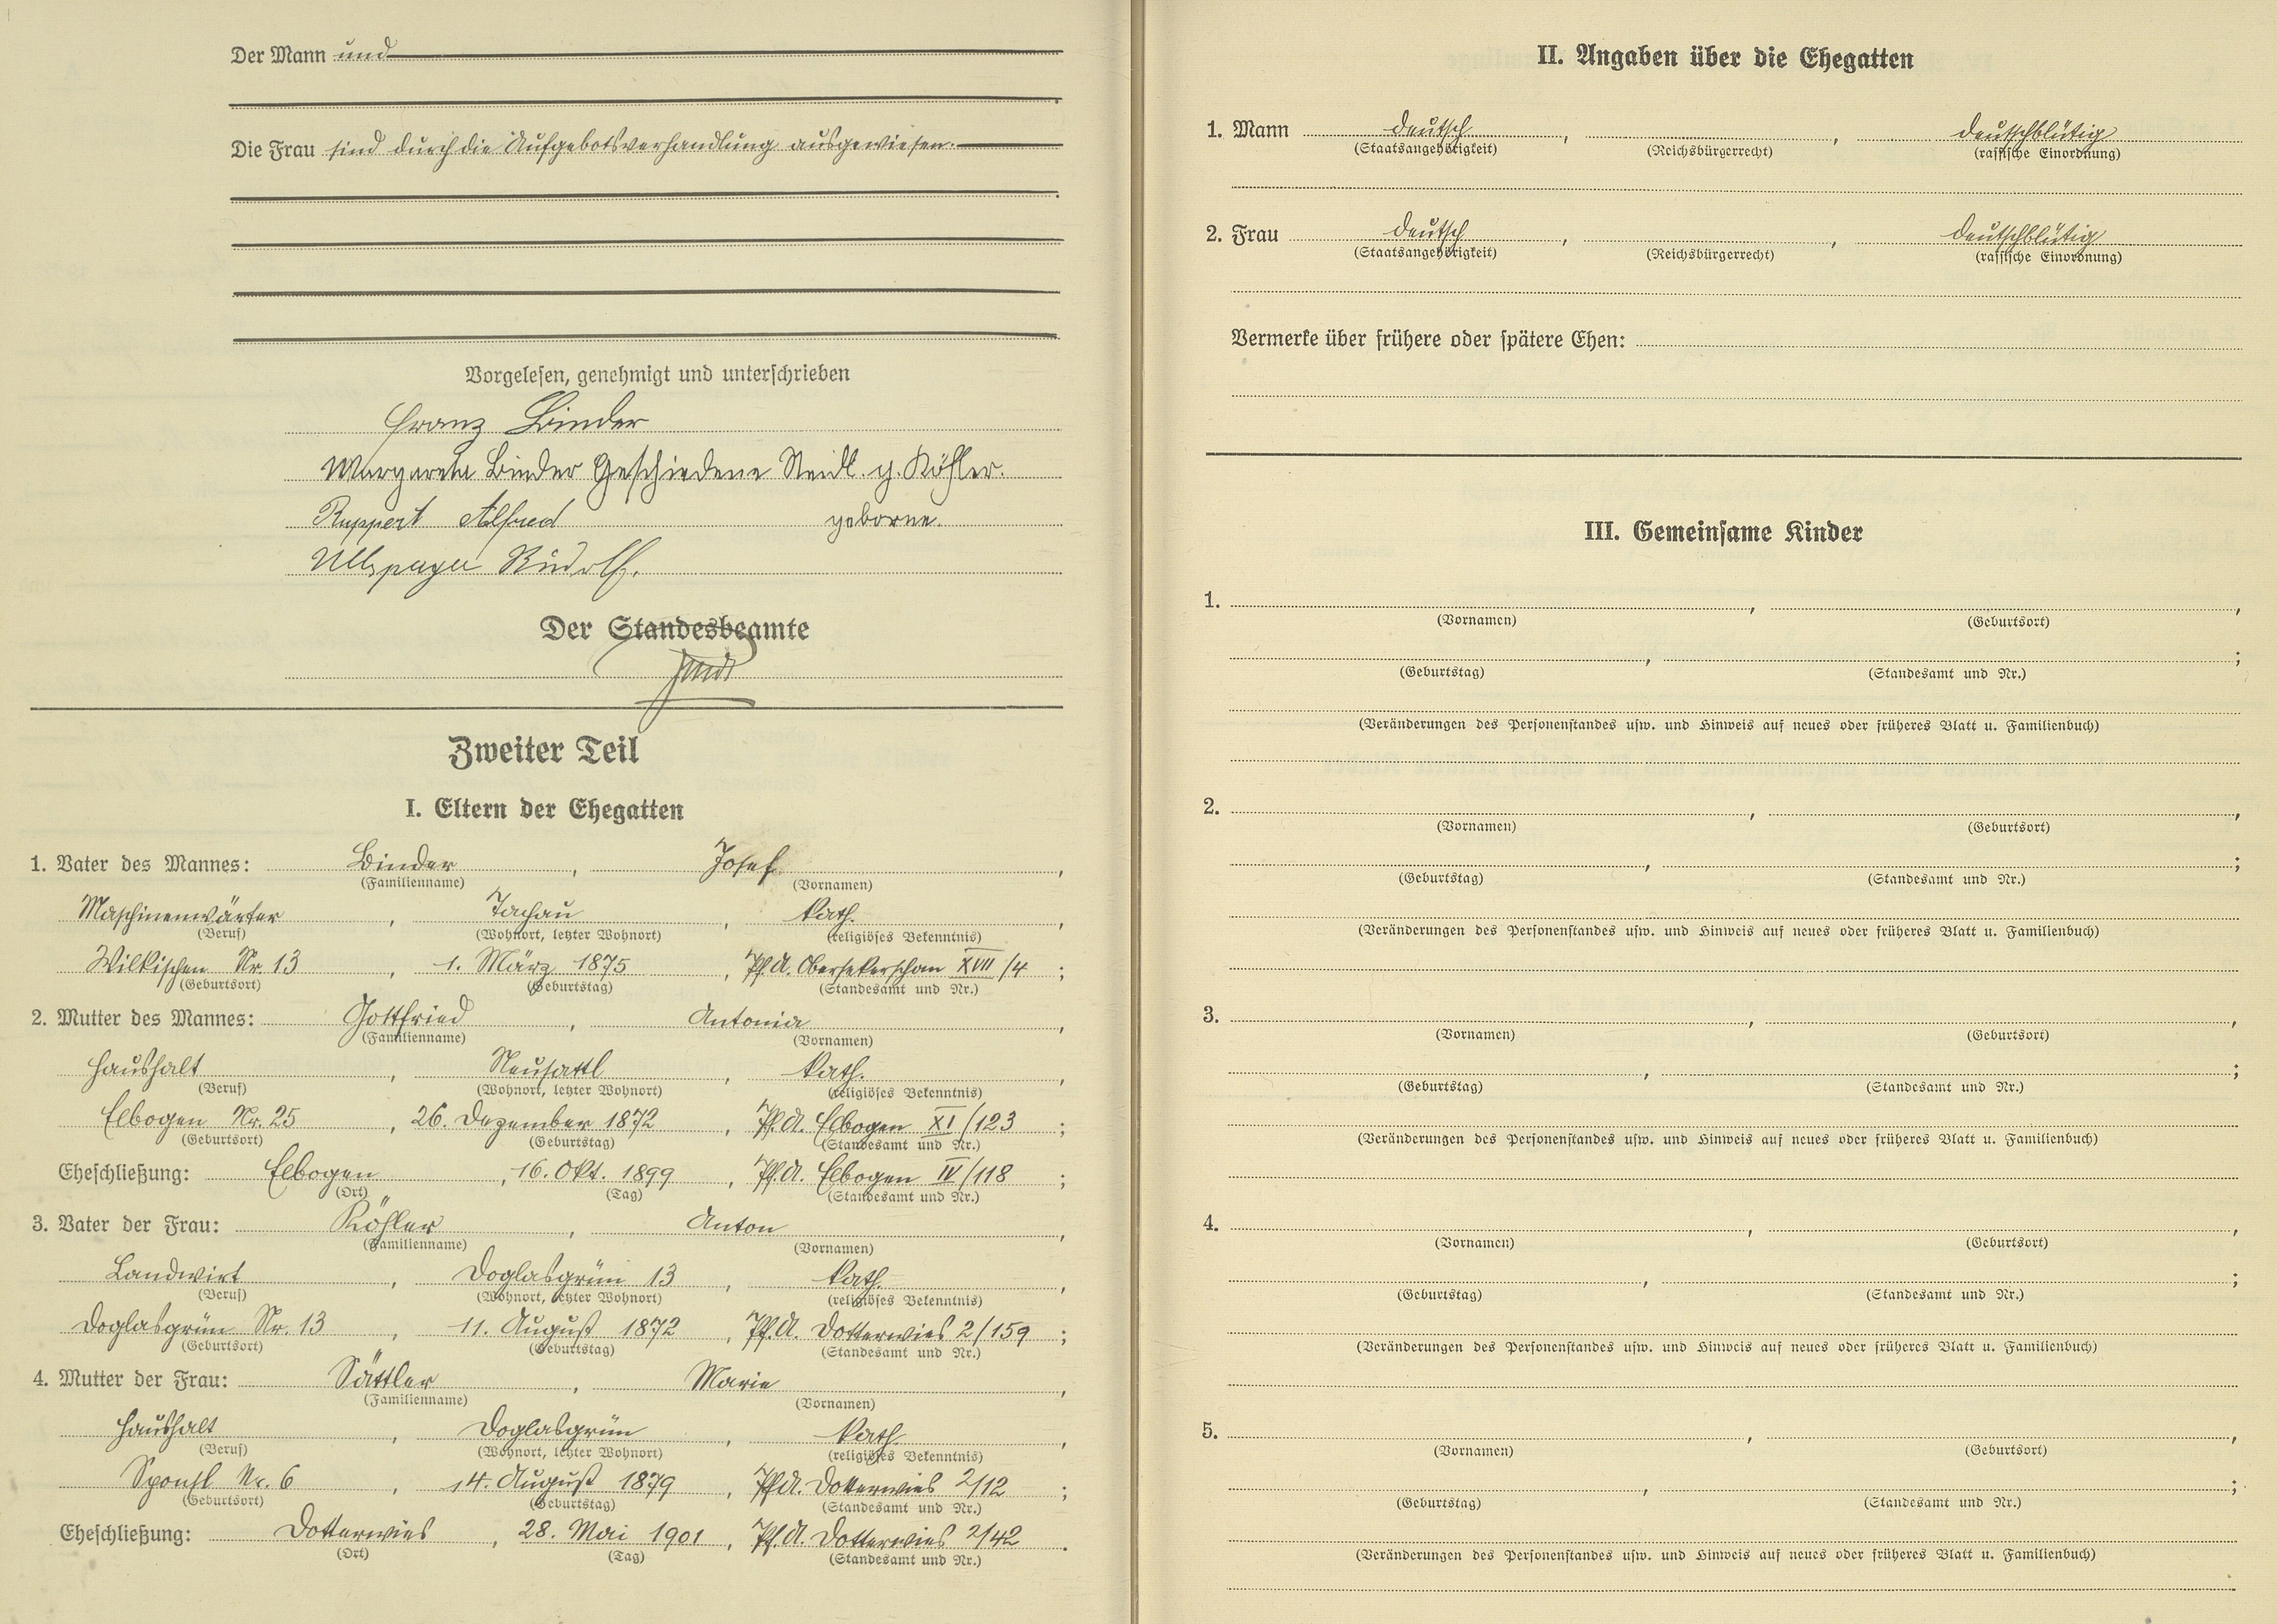 Der Mann und
Die Frau sind durch die Aufgebotsverhandlung ausgewiesen.
Vorgelesen, genehmigt und unterschrieben
Franz Binder
Margareta Binder Geschiedene Neidl. g. Köhler.
Ruppert Alfred geborne.
Rudolf.
Der Standesbeamte
Zweiter Teil
I. Eltern der Ehegatten
1. Vater des Mannes: Binder, Josef,
(Familienname) (Vornamen)
Maschinenwärter, Tachau, kath.,
(Beruf) (Wohnort, letzter Wohnort) (religiöses Bekenntnis)
Wilkischen Nr. 13, 1. März 1875, Pf. A. Obersekerschan XVII/4;
(Geburtsort) (Geburtstag) (Standesamt und Nr.)
2. Mutter des Mannes: Gottfried, Antonia,
(Familienname) (Vornamen)
Haushalt, Neusattl, kath.,
(Beruf) (Wohnort, letzter Wohnort) (religiöses Bekenntnis)
Elbogen Nr. 25, 26. Dezember 1872, Pf. A. Elbogen XI/123;
(Geburtsort) (Geburtstag) (Standesamt und Nr.)
Eheschließung: Elbogen, 16. Okt. 1899, Pf. A. Elbogen IV/118;
(Ort) (Tag) (Standesamt und Nr.)
3. Vater der Frau: Köhler, Anton,
(Familienname) (Vornamen)
Landwirt, Doglasgrün 13, kath.,
(Beruf) (Wohnort, letzter Wohnort) (religiöses Bekenntnis)
Doglasgrün Nr. 13, 11. August 1872, Pf. A. Dotterwies 2/159;
(Geburtsort) (Geburtstag) (Standesamt und Nr.)
4. Mutter der Frau: Sättler, Marie,
(Familienname) (Vornamen)
Haushalt, Doglasgrün, kath.,
(Beruf) (Wohnort, letzter Wohnort) (religiöses Bekenntnis)
Sponsl Nr. 6, 14. August 1879, Pf. A. Dotterwies 2/12;
(Geburtsort) (Geburtstag) (Standesamt und Nr.)
Eheschließung: Dotterwies, 28. Mai 1901, Pf. A. Dotterwies 2/42.
(Ort) (Tag) (Standesamt und Nr.)
II. Angaben über die Ehegatten
1. Mann deutsch, , deutschblütig
(Staatsangehörigkeit) (Reichsbürgerrecht) (rassische Einordnung)
2. Frau deutsch, , deutschblütig
(Staatsangehörigkeit) (Reichsbürgerrecht) (rassische Einordnung)
Vermerke über frühere oder spätere Ehen:
III. Gemeinsame Kinder
1. , ,
(Vornamen) (Geburtsort)
, ;
(Geburtstag) (Standesamt und Nr.)
(Veränderungen des Personenstandes usw. und Hinweis auf neues oder früheres Blatt u. Familienbuch)
2. , ,
(Vornamen) (Geburtsort)
, ;
(Geburtstag) (Standesamt und Nr.)
(Veränderungen des Personenstandes usw. und Hinweis auf neues oder früheres Blatt u. Familienbuch)
3. , ,
(Vornamen) (Geburtsort)
, ;
(Geburtstag) (Standesamt und Nr.)
(Veränderungen des Personenstandes usw. und Hinweis auf neues oder früheres Blatt u. Familienbuch)
4. , ,
(Vornamen) (Geburtsort)
, ;
(Geburtstag) (Standesamt und Nr.)
(Veränderungen des Personenstandes usw. und Hinweis auf neues oder früheres Blatt u. Familienbuch)
5. , ,
(Vornamen) (Geburtsort)
, ;
(Geburtstag) (Standesamt und Nr.)
(Veränderungen des Personenstandes usw. und Hinweis auf neues oder früheres Blatt u. Familienbuch)